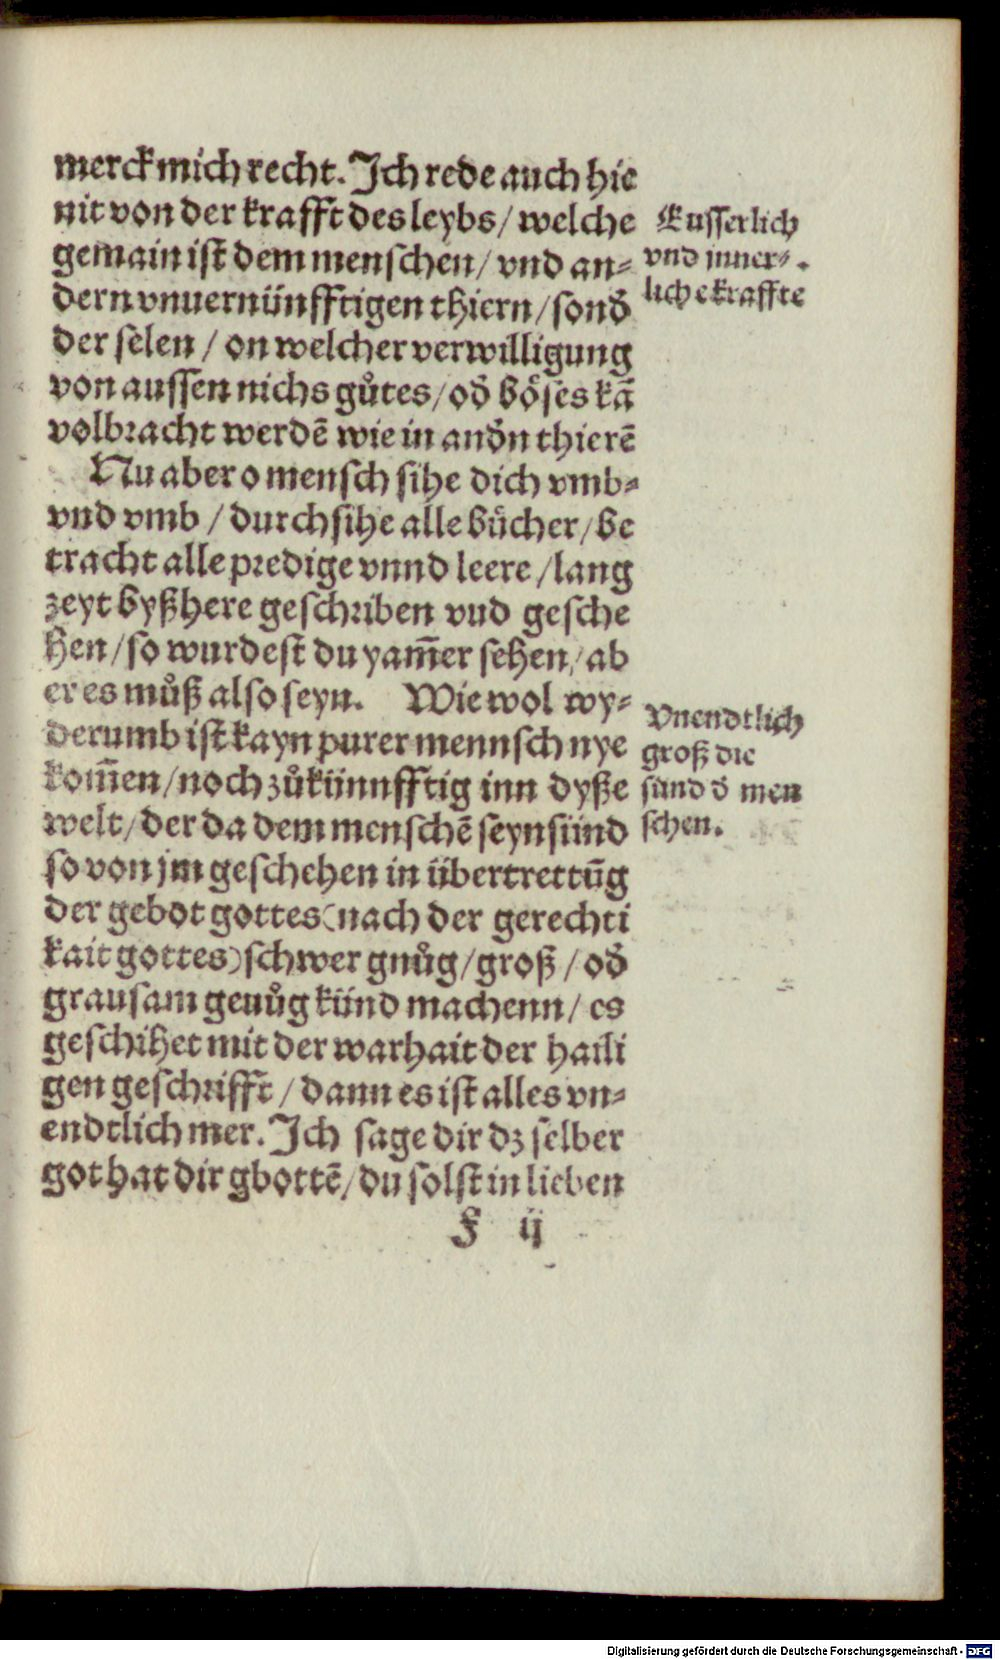 merck mich recht. Ich rede auch hie
nit von der krafft des leybs / welche
gemain ist dem menschen / vnd an⸗
dern vnuernünfftigen thiern / sond̉
der selen / on welcher verwilligung
von aussen nichs gůtes / od̉ bôses kã
volbracht werdẽ wie in and̉n thierẽ
Nu aber o mensch sihe dich vmb⸗
vnd vmb / durchsihe alle bücher / be
tracht alle predige vnnd leere / lang
zeyt byßhere geschriben vnd gesche
hen / so wurdest du yam̃er sehen / ab
er es můß also seyn. Wie wol wy⸗
derumb ist kayn purer mennsch nye
kom̃en / noch zůkünnfftig inn dyße
welt / der da dem menschẽ seyn sünd
so von jm geschehen in übertrettũg
der gebot gottes (nach der gerechti
kait gottes) schwer gnůg / groß / od̉
grausam genůg künd machenn / es
geschihet mit der warhait der haili
gen geschrifft / dann es ist alles vn⸗
endtlich mer. Ich sage dir dz selber
got hat dir gbottẽ / du solst in lieben
F ij
Eusserlich
vnd jnner⸗
liche kraffte
Vnendtlich
groß die
sünd d̉ men
schen.
Digitalisierung gefördert durch die Deutsche Forschungsgemeinschaft - DFG